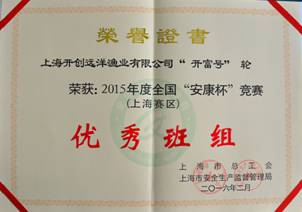 榮譽證書
上海开创远洋渔业有限公司“开富号”轮
荣获：2015年度全国“安康杯”竞赛
（上海赛区）
优秀班组
上海市总工会
上海市安全生产监督管理局
二〇一六年二月